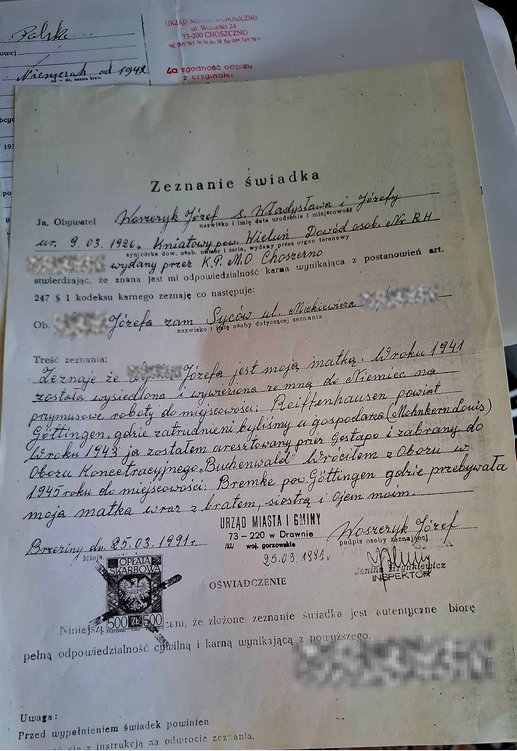 Polska
Niemczech od 1942
URZĄD
73-200 CHOSZCZNO
Za zgodność odpisu
z oryginałem
Zeznanie świadka
Ja, Obywatel Woszczyk Józef s. Władysława i Józefy
nazwisko i imię data urodzenia i miejscowość
ur. 9.03.1926. Kniatowy pow. Wieluń Dowód osob. Nr RH
wydany przez organ terenowy
wydany przez K.P. M.O Choszczno
stwierdzając, że znana jest mi odpowiedzialność karna wynikająca z postanowień art.
247 § 1 kodeksu karnego zeznaję co następuje:
Ob. Józefa zam Syców ul. Mickiewicza
nazwisko i imię osoby dotyczącej zeznania
Treść zeznania:
Zeznaję że Józefa jest moją matką. W roku 1941
została wysiedlona i wywieziona ze mną do Niemiec na
przymusowe roboty do miejscowości: Reiffenhausen powiat
Göttingen, gdzie zatrudnieni byliśmy u gospodarza (Mohnkern Louis)
W roku 1943 ja zostałem aresztowany przez Gestapo i zabrany do
Obozu Koncetracyjnego "Buchenwald" Wróciłem z Obozu w
1945 roku do miejscowości: Bremke pow. Göttingen gdzie przebywała
moja matka wraz z bratem, siostrą i Ojem moim.
Brzeziny dn. 25.03.1991r.
URZĄD MIASTA I GMINY
73-220 w Drawnie
woj. gorzowskie
25.03.1991.
Woszczyk Józef
podpis osoby zeznającej
Janina Hrynkiewicz
INSPEKTOR
OPŁATA
SKARBOWA
500 ZŁ 500
OŚWIADCZENIE
że złożone zeznanie świadka jest autentyczne biorę
pełną odpowiedzialność cywilną i karną wynikającą z powyższego.
Uwaga:
Przed wypełnieniem świadek powinien
się z instrukcją na odwrocie zeznania.